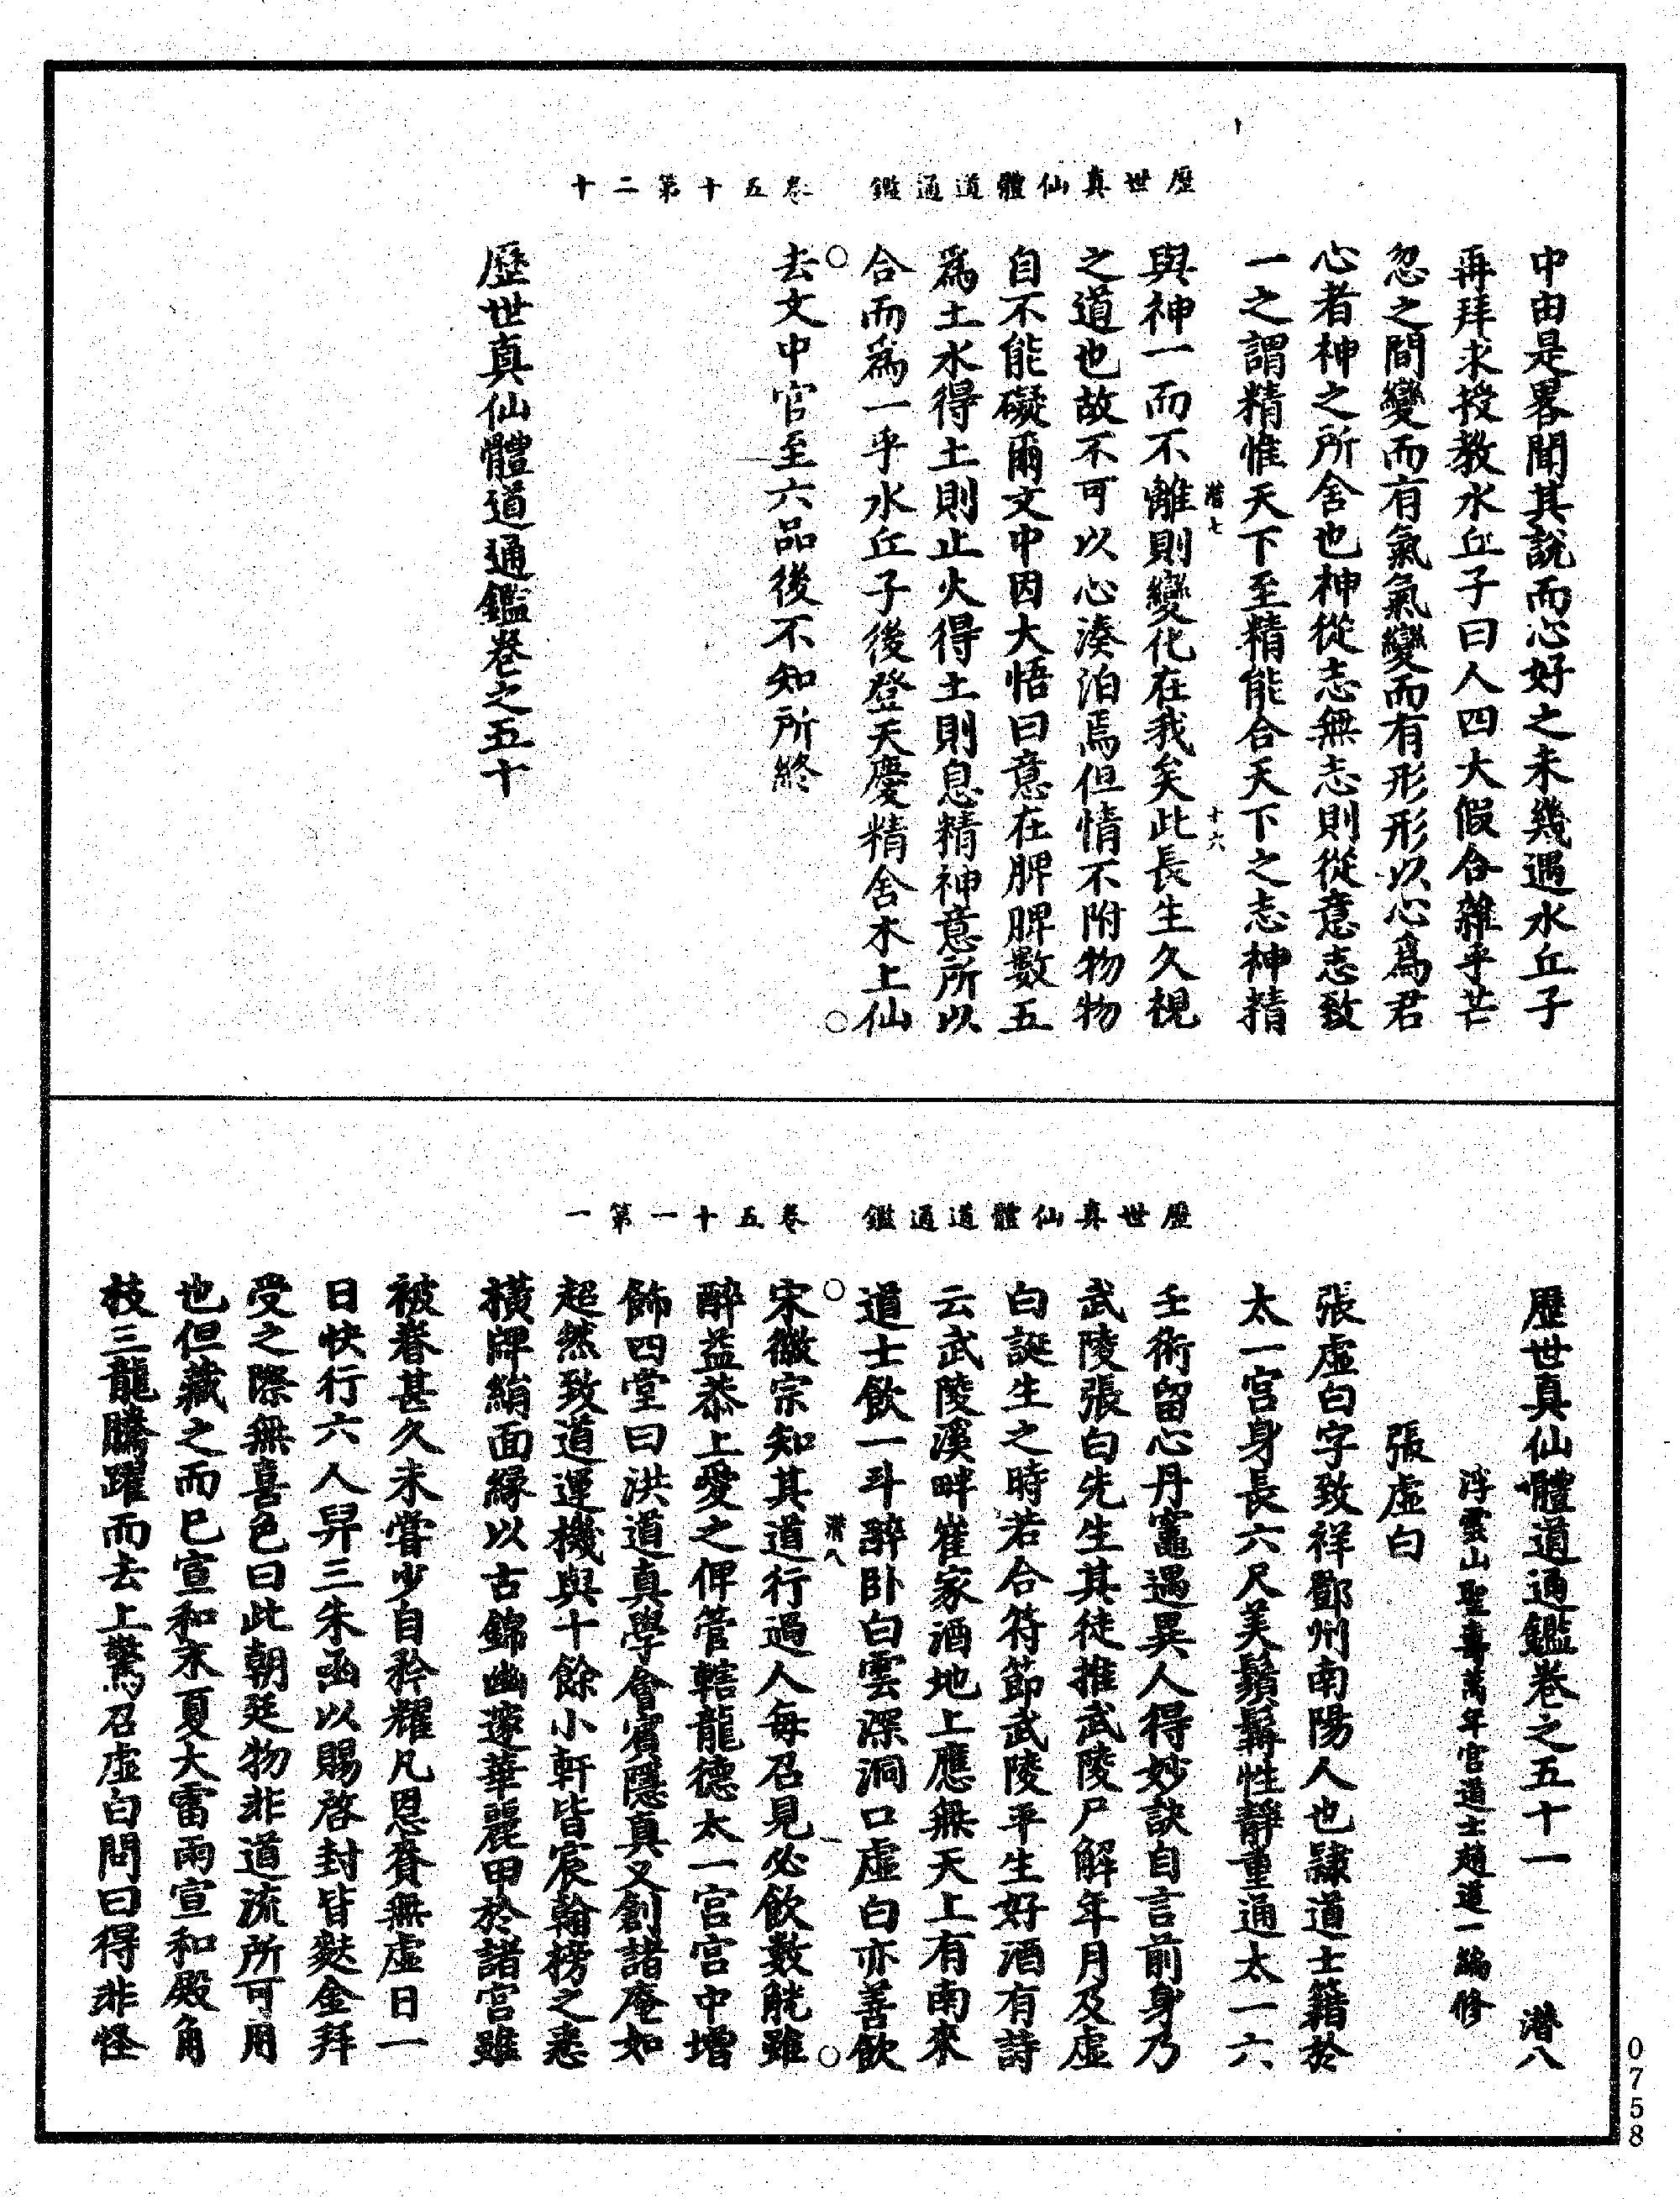 歷世真仙體道通鑑　卷五十第二十
中由是畧聞其說而心好之未幾遇水丘子
再拜求授教水丘子曰人四大假合雜乎芒
忽之間變而有氣氣變而有形形以心爲君
心者神之所舍也神從志無志則從意志致
一之謂精惟天下至精能合天下之志神精
潜七　十六
與神一而不離則變化在我矣此長生久視
之道也故不可以心湊泊焉但情不附物物
自不能礙爾文中因大悟曰意在脾脾數五
爲土水得土則止火得土則息精神意所以
合而爲一乎水丘子後登天慶精舍木上仙
去文中官至六品後不知所終
歷世真仙體道通鑑卷之五十
歷世真仙體道通鑑　卷五十一第一
歷世真仙體道通鑑卷之五十一　潜八
浮雲山聖壽萬年宮道士趙道一編修
張虛白
張虛白字致祥鄧州南陽人也隸道士籍於
太一宮身長六尺美鬚髯性靜重通太一六
壬術留心丹竈遇異人得妙訣自言前身乃
武陵張白先生其徒推武陵尸解年月及虛
白誕生之時若合符節武陵平生好酒有詩
云武陵溪畔崔家酒地上應無天上有南來
道士飲一斗醉卧白雲深洞口虛白亦善飲
潜八　一
宋徽宗知其道行過人每召見必飲數觥雖
醉益恭上愛之俾管轄龍德太一宮宮中增
飾四堂曰洪道真學會賓隱真又創諸庵如
超然致道運機與十餘小軒皆宸翰榜之悉
橫牌綃面緣以古錦幽邃華麗甲於諸宮雖
被眷甚久未嘗少自矜耀凡恩賚無虛日一
日快行六人舁三朱函以賜啓封皆麩金拜
受之際無喜色曰此朝廷物非道流所可用
也但藏之而已宣和末夏大雷雨宣和殿角
枝三龍騰躍而去上驚召虛白問曰得非怪
0758